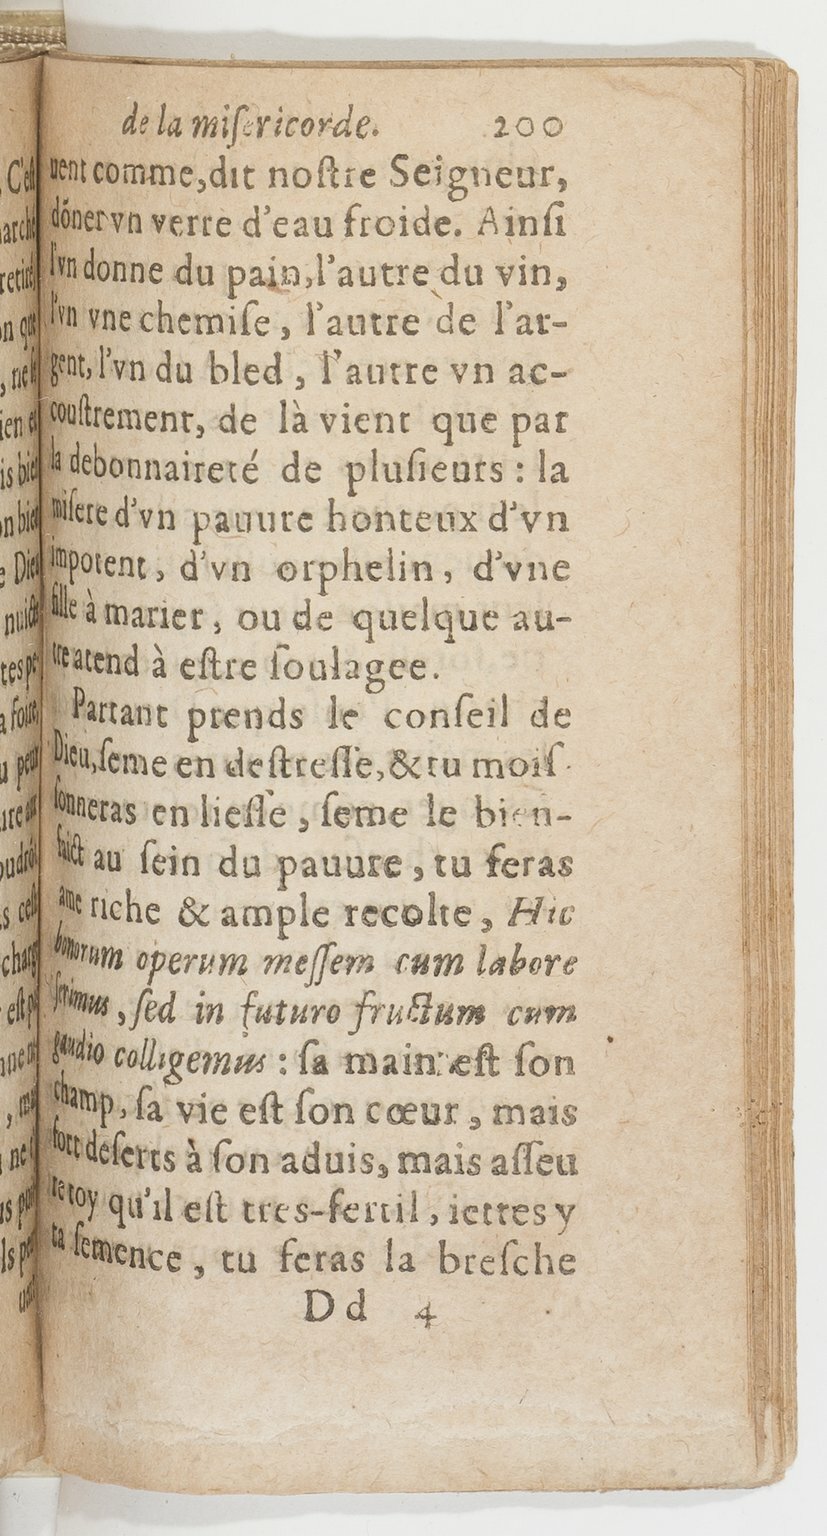 de la miſericorde. 200
uent comme, dit noſtre Seigneur,
dóner vn verre d'eau froide. Ainſi
l'vn donne du pain, l'autre du vin,
l'vn vne chemiſe, l'autre de l'ar-
gent, l'vn du bled, l'autre vn ac-
couſtrement, de là vient que par
la debonnaireté de pluſieurs : la
miſere d'vn pauure honteux d'vn
impotent, d'vn orphelin, d'vne
fille à marier, ou de quelque au-
tre atend à eſtre ſoulagee.
Partant prends le conſeil de
Dieu, ſeme en deſtreſſe, & tu moiſ-
ſonneras en lieſſe, ſeme le bien-
faict au ſein du pauure, tu feras
vne riche & ample recolte, Hic
bonorum operum meſſem cum labore
ſerimus, ſed in futuro fructum cum
gaudio colligemus : ſa main eſt ſon
champ, ſa vie eſt ſon cœur, mais
fort deſerts à ſon aduis, mais aſſeu
re toy qu'il eſt tres-fertil, iettes y
ta ſemence, tu feras la breſche
Dd 4